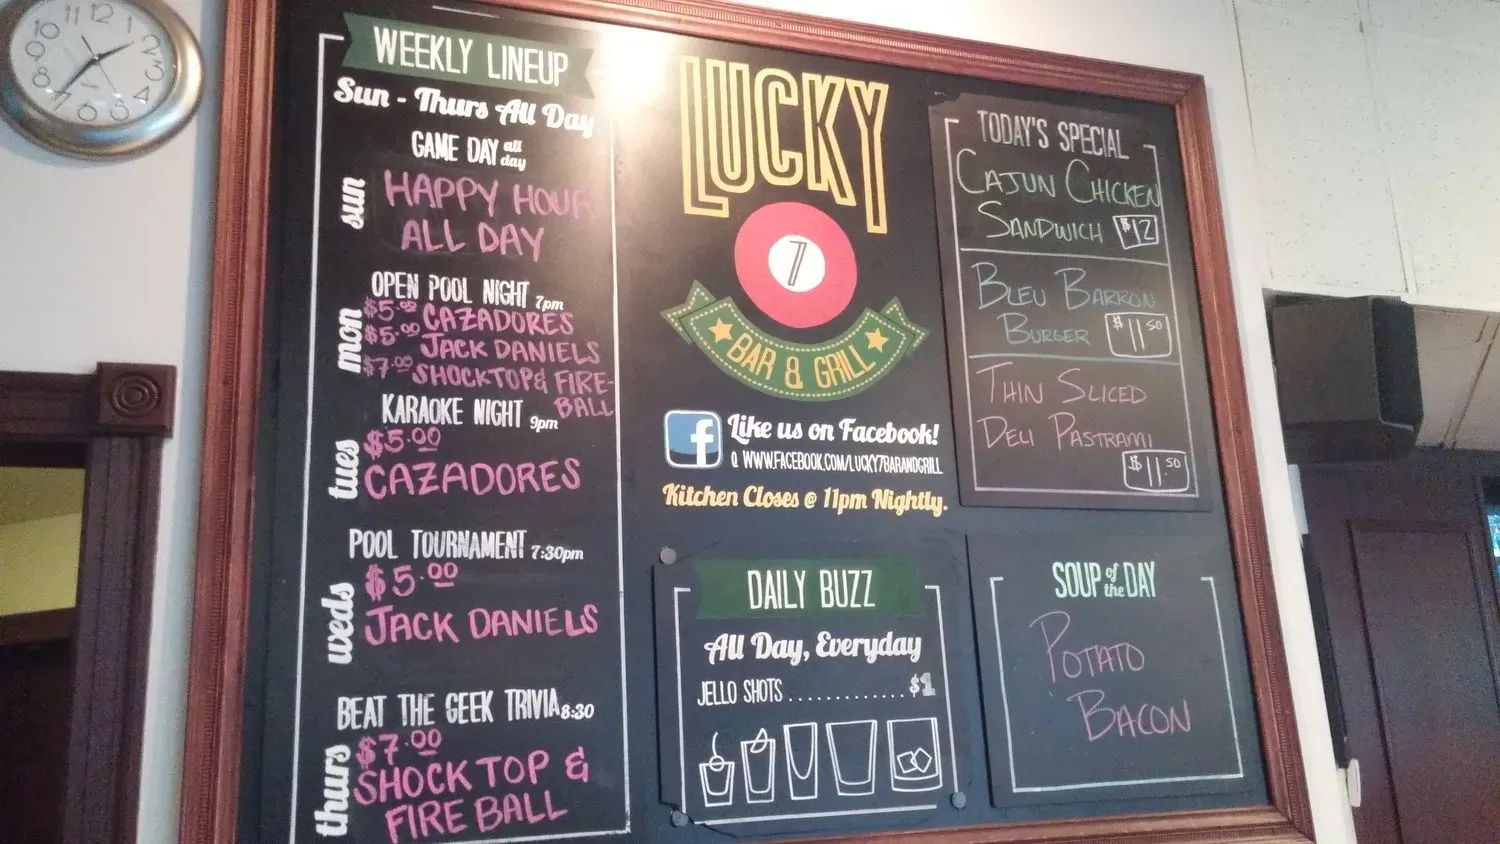 12
11
1
10
2
9
3
8
4
7
6
5
WEEKLY LINEUP
Sun - Thurs All Day
GAME DAY all day
sun
HAPPY HOUR
ALL DAY
OPEN POOL NIGHT 7pm
mon
$5.00 CAZADORES
$5.00 JACK DANIELS
$7.00 SHOCKTOP & FIRE-
BALL
KARAOKE NIGHT 9pm
tues
$5.00
CAZADORES
POOL TOURNAMENT 7:30pm
weds
$5.00
JACK DANIELS
BEAT THE GEEK TRIVIA 8:30
thurs
$7.00
SHOCK TOP &
FIRE BALL
LUCKY
7
BAR & GRILL
f
Like us on Facebook!
Q WWW.FACEBOOK.COM/LUCKY7BARANDGRILL
Kitchen Closes @ 11pm Nightly.
DAILY BUZZ
All Day, Everyday
JELLO SHOTS ............ $1
TODAY'S SPECIAL
CAJUN CHICKEN
SANDWICH $12
BLEU BARRON
BURGER $11.50
THIN SLICED
DELI PASTRAMI
$11.50
SOUP of the DAY
POTATO
BACON